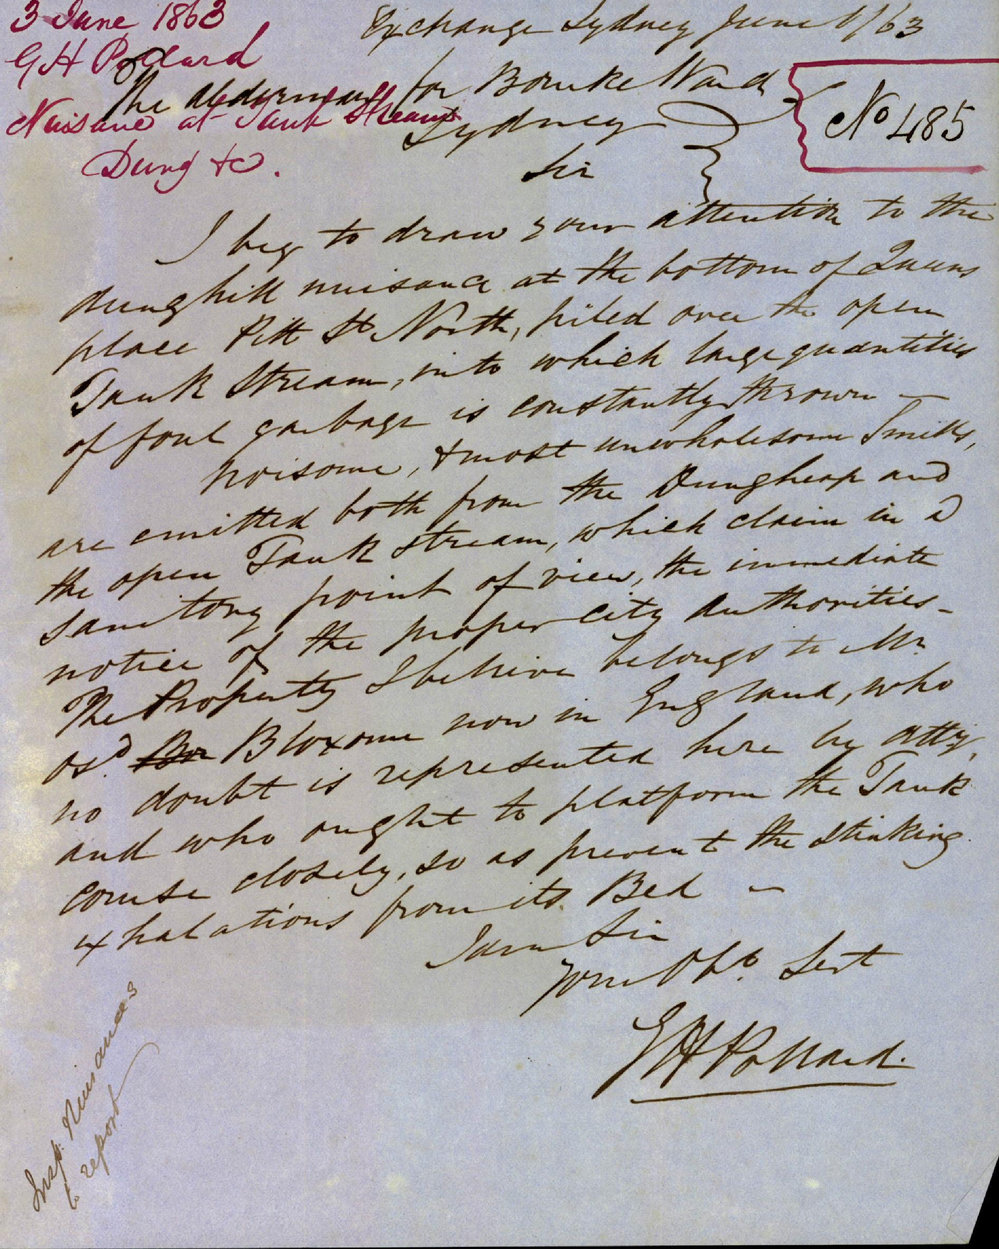 3 June 1863
G H Pollard
Nuisance at Tank Stream
Dung &c.
Exchange Sydney June 1/63
The Alderman for Bourke Ward
Sydney
No 485
Sir
I beg to draw your attention to the
dunghill nuisance at the bottom of Queens
place Pitt St North, piled over the open
Tank Stream, into which large quantities
of foul garbage is constantly thrown —
noisome, & most unwholesome smells,
are emitted both from the Dungheap and
the open Tank Stream, which claim in a
sanitory point of view, the immediate
notice of the proper city authorities -
The Property I believe belongs to Mr
Osd Bloxome now in England, who
no doubt is represented here by atty,
and who ought to platform the Tank
course closely, so as prevent the stinking
exhalations from its Bed —
I am Sir
Your Obt. Sert
G H Pollard.
Insp. Nuisances
to report